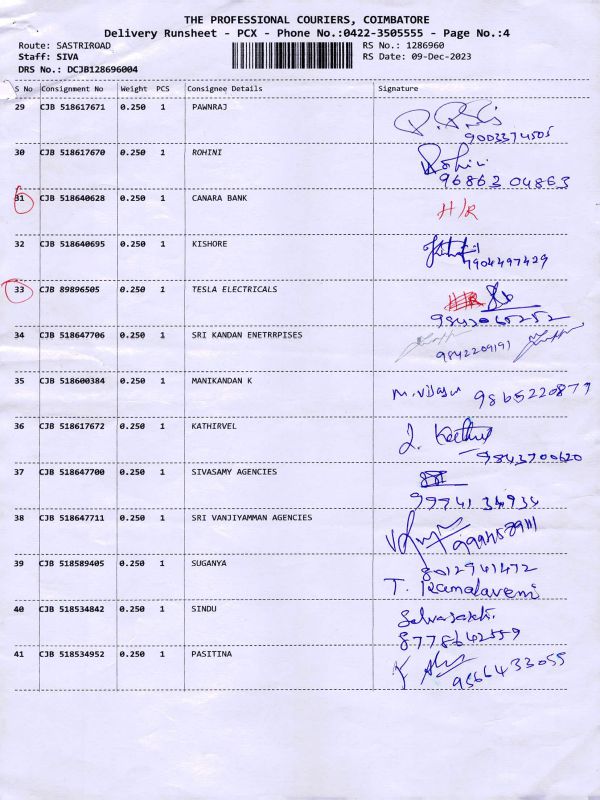 THE PROFESSIONAL COURIERS, COIMBATORE
Delivery Runsheet - PCX - Phone No.:0422-3505555 - Page No.:4
Route: SASTRIROAD RS No.: 1286960
Staff: SIVA RS Date: 09-Dec-2023
DRS No.: DCJB128696004
S No Consignment No Weight PCS Consignee Details Signature
29 CJB 518617671 0.250 1 PAWNRAJ
9003374505
30 CJB 518617670 0.250 1 ROHINI Rohini
96863 04863
31 CJB 518640628 0.250 1 CANARA BANK H/R
32 CJB 518640695 0.250 1 KISHORE
7904497429
33 CJB 89896505 0.250 1 TESLA ELECTRICALS
9843065252
34 CJB 518647706 0.250 1 SRI KANDAN ENETRRPISES
9842209191
35 CJB 518600384 0.250 1 MANIKANDAN K
M. Vijaya 9865220879
36 CJB 518617672 0.250 1 KATHIRVEL
9843700620
37 CJB 518647700 0.250 1 SIVASAMY AGENCIES
97741 34934
38 CJB 518647711 0.250 1 SRI VANJIYAMMAN AGENCIES
39 CJB 518589405 0.250 1 SUGANYA 8012941472
T. Ramalaveni
40 CJB 518534842 0.250 1 SINDU
8778642559
41 CJB 518534952 0.250 1 PASITINA
9566433055